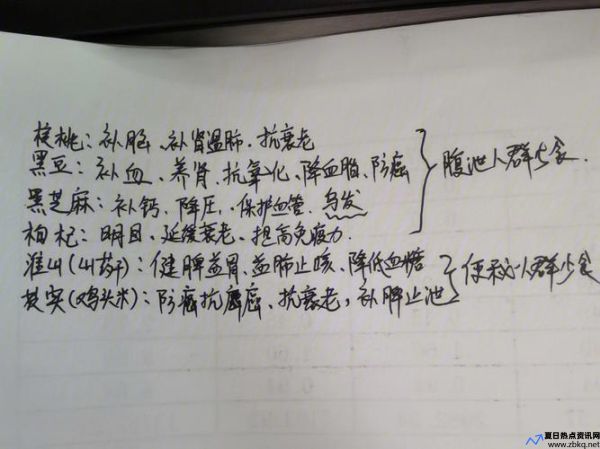 核桃：补脑、补肾温肺、抗衰老
黑豆：补血、养肾、抗氧化、降血脂、防癌
黑芝麻：补钙、降压、保护血管、乌发
腹泄人群少食.
枸杞：明目、延缓衰老、提高免疫力.
淮山(山药)：健脾益胃、益肺止咳、降低血糖
芡实(鸡头米)：防癌抗癌、抗衰老，补脾止泄
便秘人群少食
夏日热点资讯网
www.zbkq.net